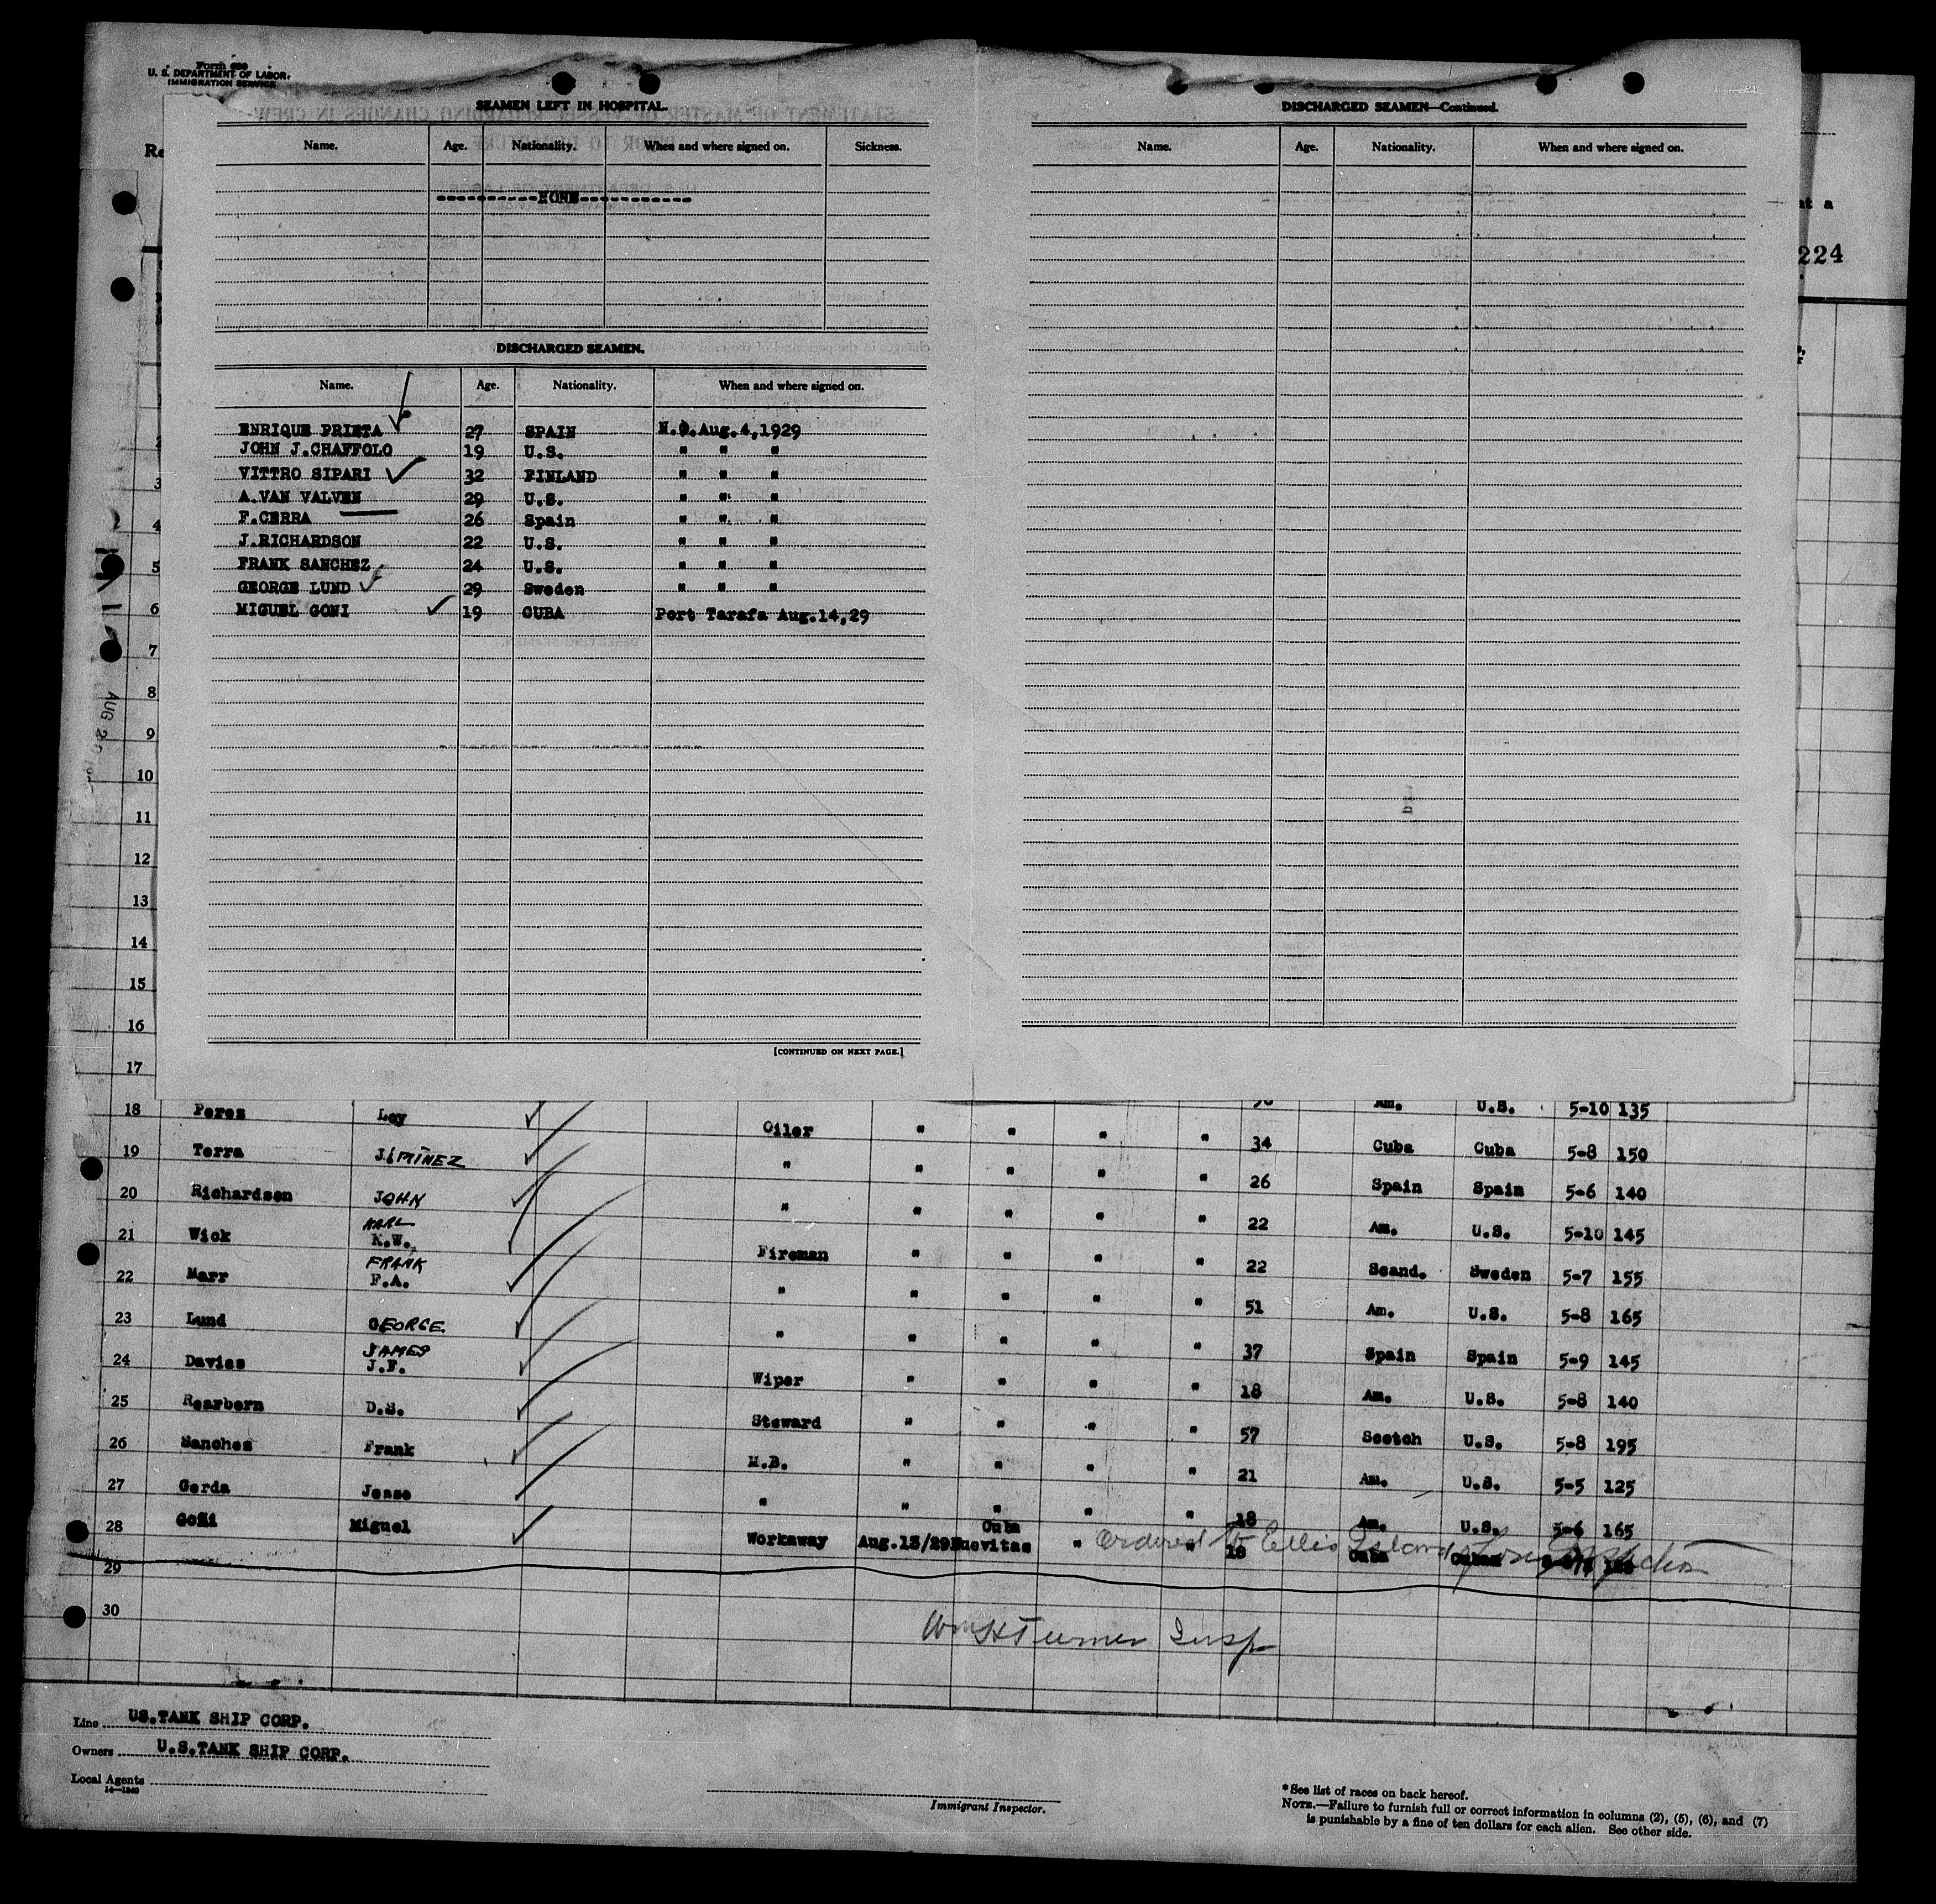 Form 689
U. S. DEPARTMENT OF LABOR.
IMMIGRATION SERVICE
Re
at a
224
SEAMEN LEFT IN HOSPITAL.
Name. Age. Nationality. When and where signed on. Sickness.
----------NONE-----------
DISCHARGED SEAMEN.
Name. Age. Nationality. When and where signed on.
ENRIQUE PRIETA 27 SPAIN N.O.Aug.4,1929
JOHN J.CHAFFOLO 19 U.S. " " "
VITTRO SIPARI 32 FINLAND " " "
A.VAN VALVEN 29 U.S. " " "
F.CERRA 26 Spain " " "
J.RICHARDSON 22 U.S. " " "
FRANK SANCHEZ 24 U.S. " " "
GEORGE LUND 29 Sweden " " "
MIGUEL GONI 19 CUBA Port Tarafa Aug.14,29
[CONTINUED ON NEXT PAGE.]
DISCHARGED SEAMEN—Continued.
Name. Age. Nationality. When and where signed on.
3
4
5
6
7
8
AUG 20
9
10
11
12
13
14
15
16
17
18 Perez Loy Am. U.S. 5-10 135
19 Terra JIMINEZ Oiler " " " " 34 Cuba Cuba 5-8 150
20 Richardson JOHN " " " " " 26 Spain Spain 5-6 140
KARL
21 Wick K.W. " " " " " 22 Am. U.S. 5-10 145
FRANK
22 Marr F.A. Fireman " " " " 22 Scand. Sweden 5-7 155
23 Lund GEORGE " " " " " 51 Am. U.S. 5-8 165
JAMES
24 Davies J.F. " " " " " 37 Spain Spain 5-9 145
25 Rearborn D.S. Wiper " " " " 18 Am. U.S. 5-8 140
26 Sanches Frank Steward " " " " 57 Scotch U.S. 5-8 195
27 Gerda Jesse M.B. " " " " 21 Am. U.S. 5-5 125
28 Goñi Miguel " " " " " 18 Am. U.S. 5-6 165
Cuba
Workaway Aug.13/29 Nuevitas " " 18 Cuba Cuban
Ordered to Ellis Island
29
30
Wm H Turner Insp
Line US.TANK SHIP CORP.
Owners U.S.TANK SHIP CORP.
Local Agents
14—1240
Immigrant Inspector.
*See list of races on back hereof.
NOTE.—Failure to furnish full or correct information in columns (2), (5), (6), and (7)
is punishable by a fine of ten dollars for each alien. See other side.